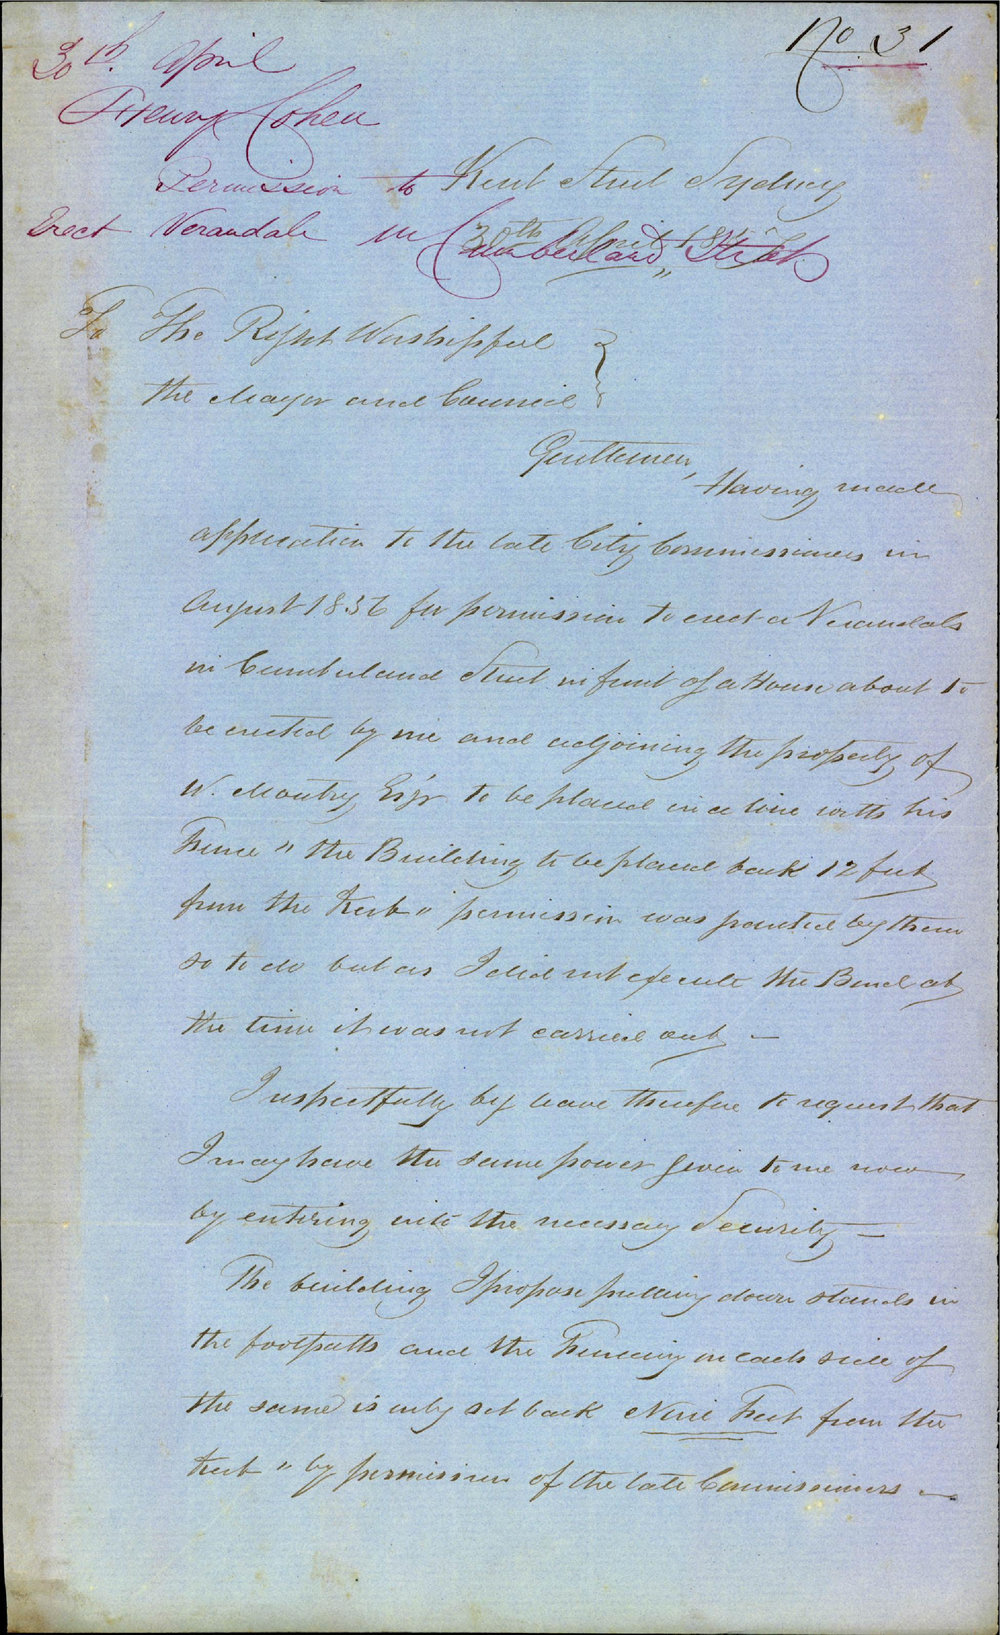 No. 31
30th. April
Henry Cohen
Permission to
Erect Verandah in Cumberland Street
Kent Street Sydney
30th April
To The Right Worshipful
the Mayor and Council
Gentlemen,
Having made
application to the late City Commissioners in
August 1856 for permission to erect a Verandah
in Cumberland Street in front of a House about to
be erected by me and adjoining the property of
W. Manby Esqr to be placed in a line with his
Fence " the Building to be placed back 12 feet
from the Kerb " permission was granted by them
so to do but as I did not execute the Bond at
the time it was not carried out —
I respectfully beg leave therefore to request that
I may have the same power given to me now
by entering into the necessary Security —
The building I propose pulling down stands in
the footpath and the Fencing on each side of
the same is only set back Nine Feet from the
Kerb " by permission of the late Commissioners —